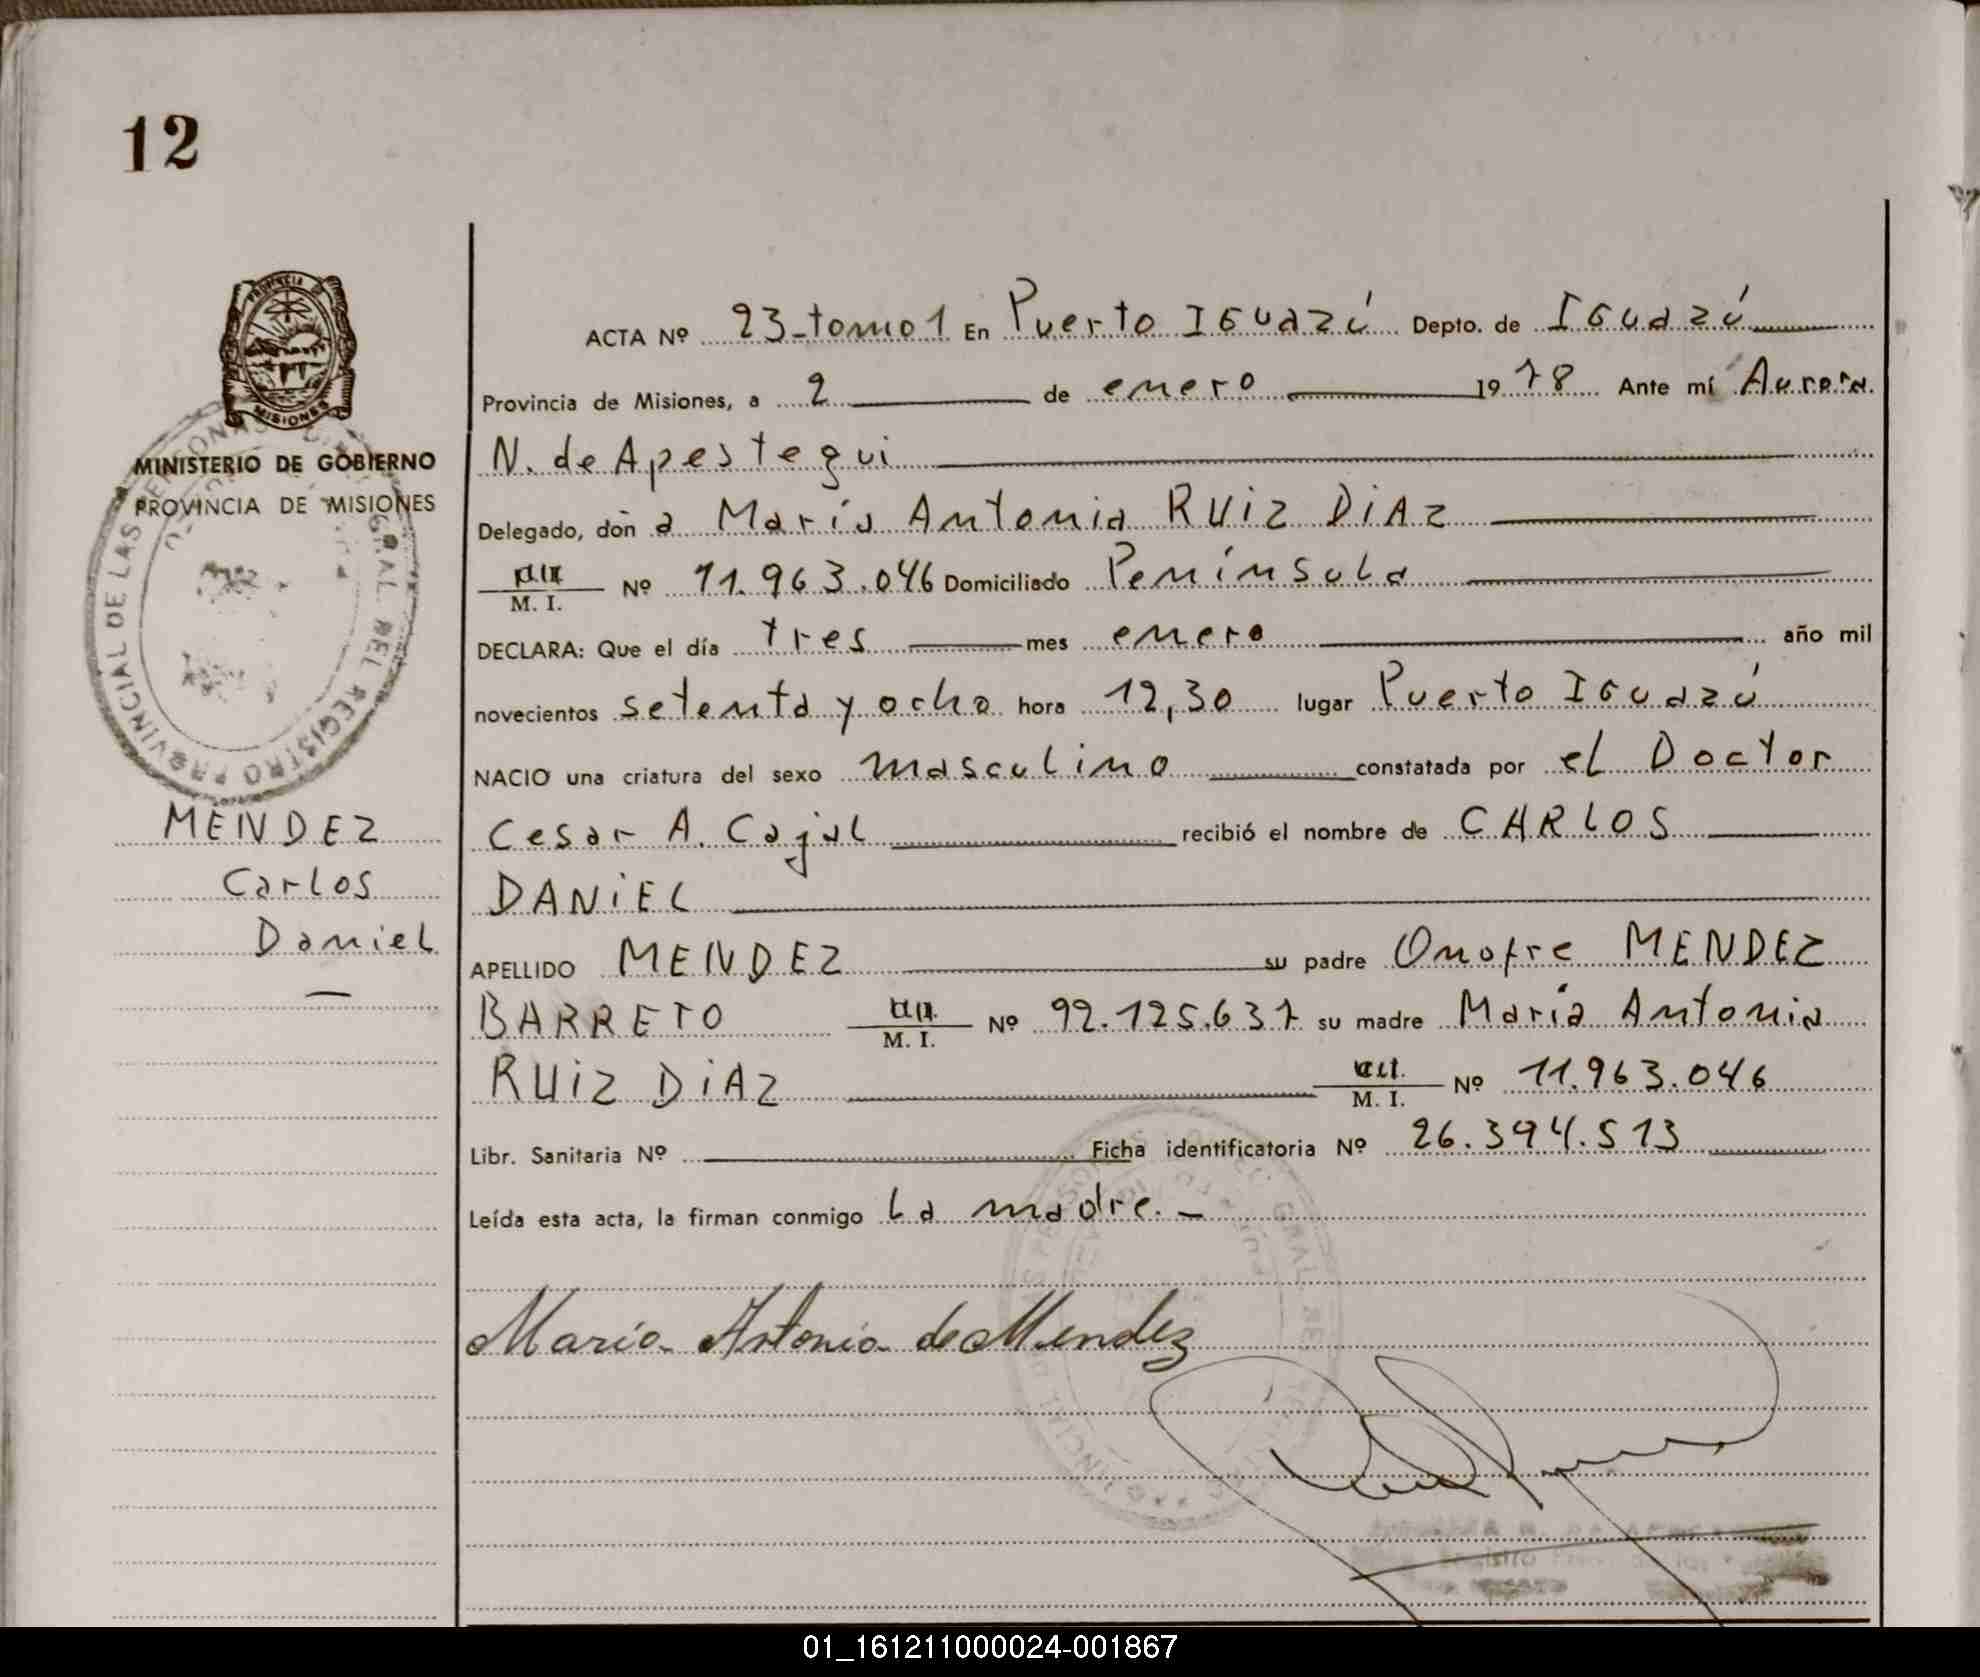 12
PROVINCIA DE
MISIONES
MINISTERIO DE GOBIERNO
PROVINCIA DE MISIONES
PROVINCIAL DE LAS PERSONAS GRAL. DEL REGISTRO
MENDEZ
Carlos
Daniel
ACTA Nº 23-tomo 1 En Puerto IGuazú Depto. de IGuazú
Provincia de Misiones, a 2 de enero 1978 Ante mí Aurora
N. de Apestegui
Delegado, don a María Antonia RUiz DiAz
M. I. Nº 11.963.046 Domiciliado Península
DECLARA: Que el día tres mes enero año mil
novecientos setenta y ocho hora 12,30 lugar Puerto IGuazú
NACIO una criatura del sexo masculino constatada por el Doctor
Cesar A. Cajal recibió el nombre de CARLOS
DANiEL
APELLIDO MENDEZ su padre Onofre MENDEZ
BARRETO M. I. Nº 92.125.637 su madre María Antonia
RUiz DiAz M. I. Nº 11.963.046
Libr. Sanitaria Nº Ficha identificatoria Nº 26.394.513
Leída esta acta, la firman conmigo La madre. -
María Antonia de Mendez
01_161211000024-001867